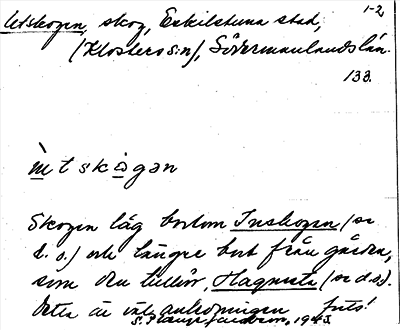 1-2
Utskogen, skog, Eskilstuna stad,
(Klosters s:n), Södermanlands län.
133.
ùtskògən
Skogen låg bortom Inskogen (se
d. o.) och längre bort från gården,
som den tillhör, Hagnesta (se d.o.).
Detta är väl anledningen forts!
1943